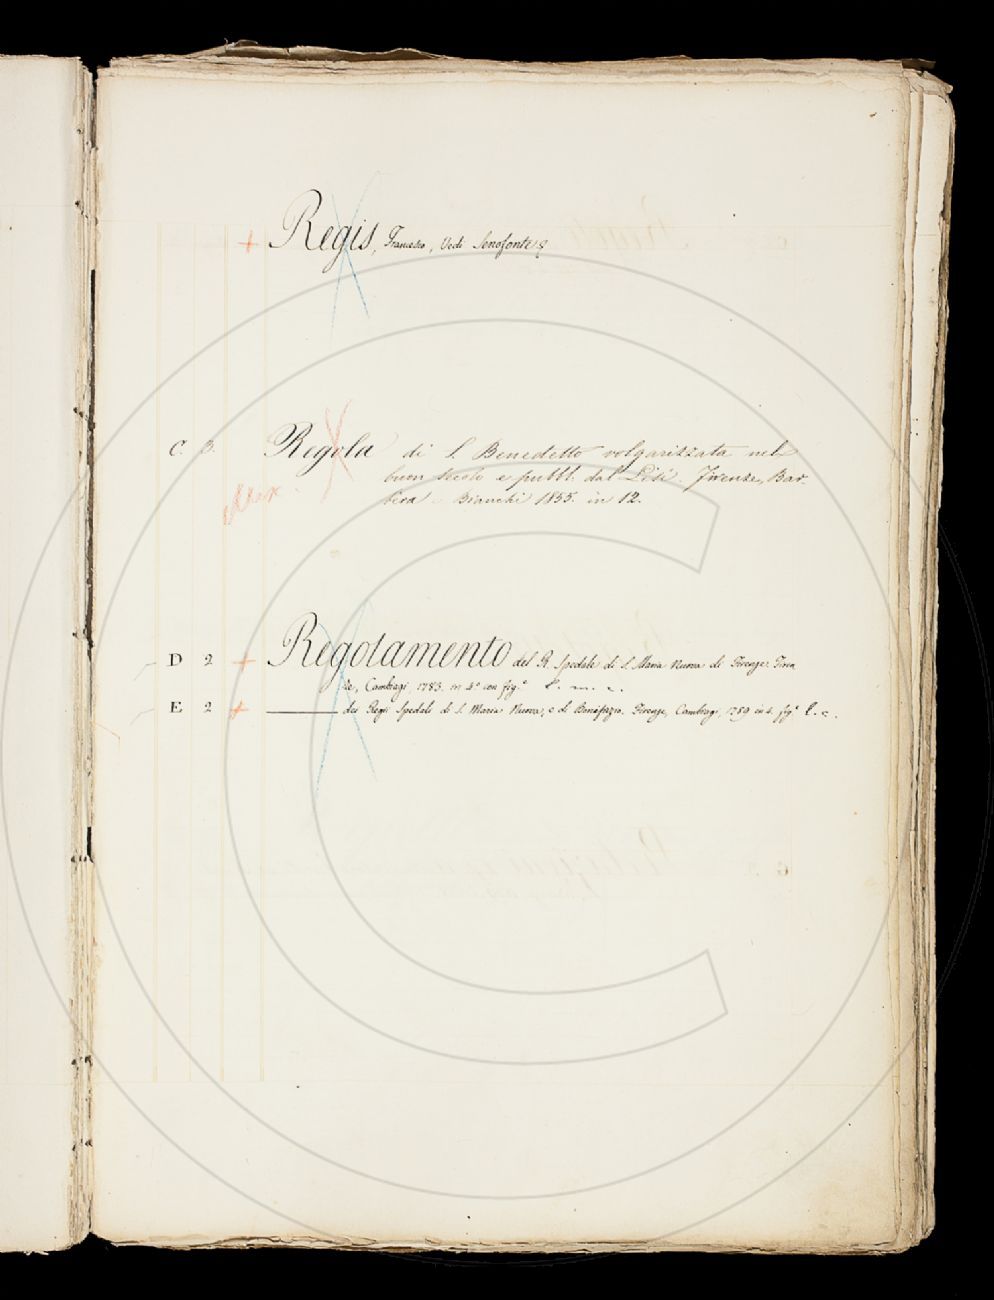 + Regis, Francesco, Vedi Senofonte
C. B. Regola di S. Benedetto volgarizzata nel
buon secolo e pubbl. dal Lisi. Firenze, Bar-
bera - Bianchi 1855. in 12.
D 2 + Regolamento del R. Spedale di S. Maria Nuova di Firenze. Firen
ze, Cambiagi, 1783. in 4.° con fig.e l. m. c.
E 2 + ——— dei Regii Spedali di S. Maria Nuova, e di Bonifazio. Firenze, Cambiagi, 1789 in 4. fig.e l. c.